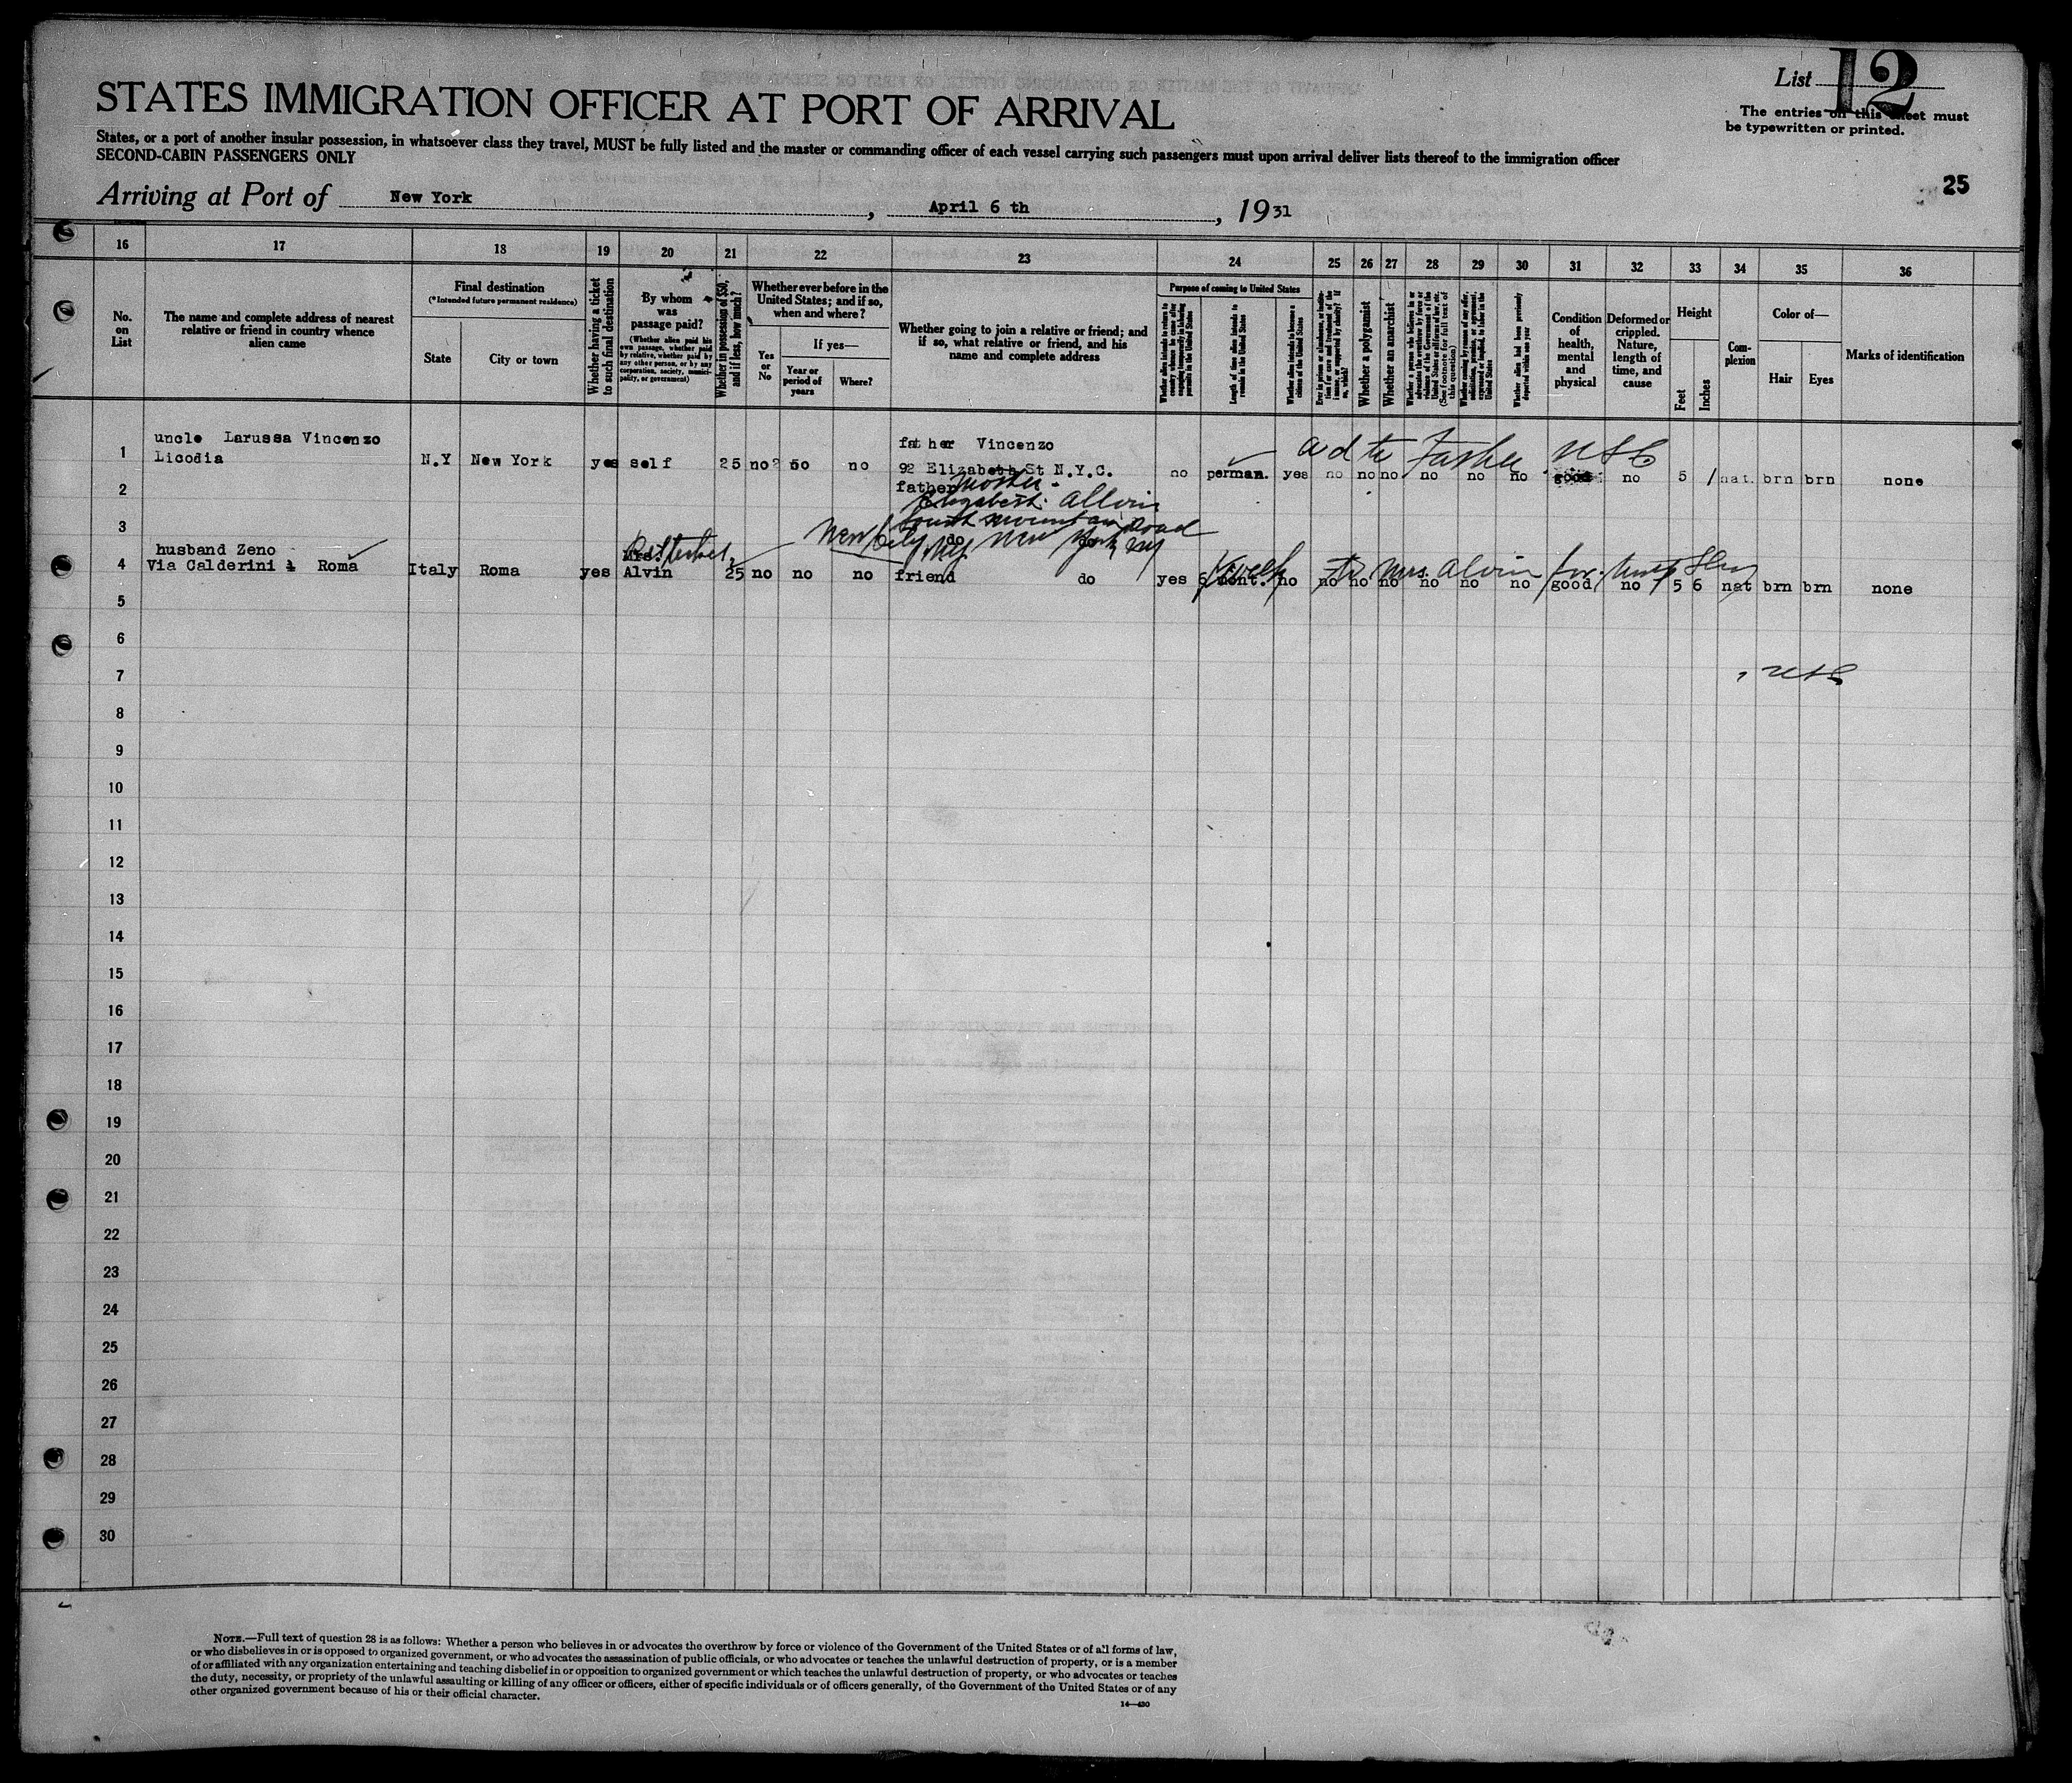 List 12
STATES IMMIGRATION OFFICER AT PORT OF ARRIVAL
The entries on this sheet must
be typewritten or printed.
States, or a port of another insular possession, in whatsoever class they travel, MUST be fully listed and the master or commanding officer of each vessel carrying such passengers must upon arrival deliver lists thereof to the immigration officer
SECOND-CABIN PASSENGERS ONLY
25
Arriving at Port of New York, April 6 th, 1931
16 17 18 19 20 21 22 23 24 25 26 27 28 29 30 31 32 33 34 35 36
No. on List
The name and complete address of nearest
relative or friend in country whence
alien came
Final destination
(*Intended future permanent residence)
State
City or town
Whether having a ticket
to such final destination
By whom
was
passage paid?
(Whether alien paid his
own passage, whether paid
by relative, whether paid by
any other person, or by any
corporation, society, munici-
pality, or government)
Whether in possession of $50,
and if less, how much?
Whether ever before in the
United States; and if so,
when and where?
Yes
or
No
If yes—
Year or
period of
years
Where?
Whether going to join a relative or friend; and
if so, what relative or friend, and his
name and complete address
Purpose of coming to United States
Whether alien intends to return to
country whence he came after
engaging temporarily in laboring
pursuits in the United States
Length of time alien intends to
remain in the United States
Whether alien intends to become a
citizen of the United States
Ever in prison or almshouse, or institu-
tion for care and treatment of the
insane, or supported by charity? If
so, which?
Whether a polygamist
Whether an anarchist
Whether a person who believes in or
advocates the overthrow by force or
violence of the Government of the
United States or all forms of law, etc.
(See footnote for full text of
this question)
Whether coming by reason of any offer,
solicitation, promise, or agreement,
expressed or implied, to labor in the
United States
Whether alien had been previously
deported within one year
Condition
of
health,
mental
and
physical
Deformed or
crippled.
Nature,
length of
time, and
cause
Height
Feet
Inches
Com-
plexion
Color of—
Hair
Eyes
Marks of identification
ad to Father USC
uncle Larussa Vincenzo father Vincenzo
1 Licodia N.Y New York yes self 25 no? 50 no 92 Elizabeth St N.Y.C. no perman. yes no no no no no no good no 5 nat. brn brn none
2 father mother
Elizabeth Allvin
3 South Mountain Road
do New City New York NY
husband Zeno Mrs.
4 Via Calderini 1 Roma Italy Roma yes Alvin 25 no no no friend do yes 6 mont. no no no no no no no good no 5 6 nat brn brn none
week to Mrs Alvin for
5
6
7 USC
8
9
10
11
12
13
14
15
16
17
18
19
20
21
22
23
24
25
26
27
28
29
30
NOTE.—Full text of question 28 is as follows: Whether a person who believes in or advocates the overthrow by force or violence of the Government of the United States or of all forms of law,
or who disbelieves in or is opposed to organized government, or who advocates the assassination of public officials, or who advocates or teaches the unlawful destruction of property, or is a member
of or affiliated with any organization entertaining and teaching disbelief in or opposition to organized government or which teaches the unlawful destruction of property, or who advocates or teaches
the duty, necessity, or propriety of the unlawful assaulting or killing of any officer or officers, either of specific individuals or of officers generally, of the Government of the United States or of any
other organized government because of his or their official character.
14—430